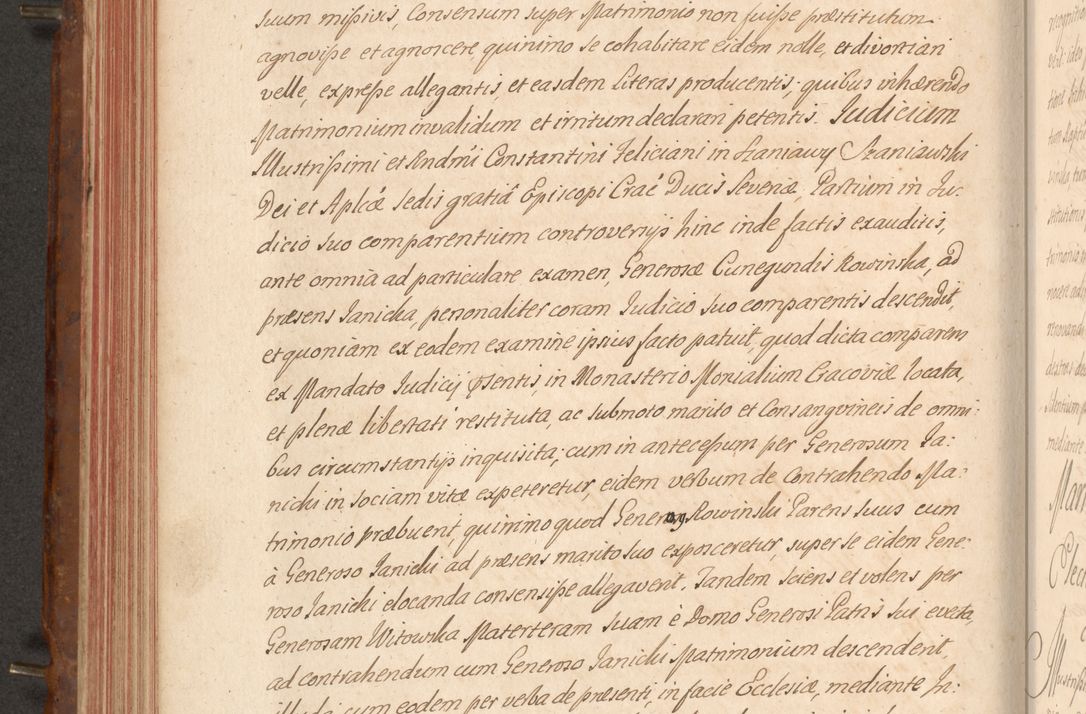 suum missivis, Consensum super Matrimonio non fuisse præstitutum
agnovisse et agnoscere, quinimo se cohabitare eidem nolle, et divortiari
velle, expresse allegantis, et easdem Literas producentis; quibus inhærendo
Matrimonium invalidum et irritum declarari petentis. Judicium
Illustrissimi et Rndmi Constantini Feliciani in Szaniawy Szaniawski
Dei et Aplicæ Sedis gratia Episcopi Crac Ducis Severiæ, Partium in Ju-
dicio suo comparentium controversijs hinc inde factis exauditis,
ante omnia ad particulare examen, Generosæ Cunegundis Rowinska, ad
præsens Janicka, personaliter coram Judicio suo comparentis descendit,
et quoniam ex eodem examine ipsius facto patuit, quod dicta comparens
ex Mandato Judicij psentis, in Monasterio Monialium Cracoviæ locata,
et plenæ libertati restituta, ac submoto marito et Consangvineis de omni-
bus circumstantijs inquisita; cum in antecessum per Generosum Ja:
nicki in sociam vitæ expeteretur, eidem verbum de Contrahendo Ma:
trimonio præbuerit, quinimo quod Generosus Rowinski Parens suus cum
à Generoso Janicki ad præsens marito suo exposceretur, super se eidem Gene:
roso Janicki elocanda consensisse allegaverit. Tandem sciens et volens per
Generosam Witowska Materteram suam è Domo Generosi Patris sui evecta,
ad contrahendum cum Generoso Janicki Matrimonium descenderit,
cum eodem per verba de præsenti, in facie Ecclesiæ, mediante In: